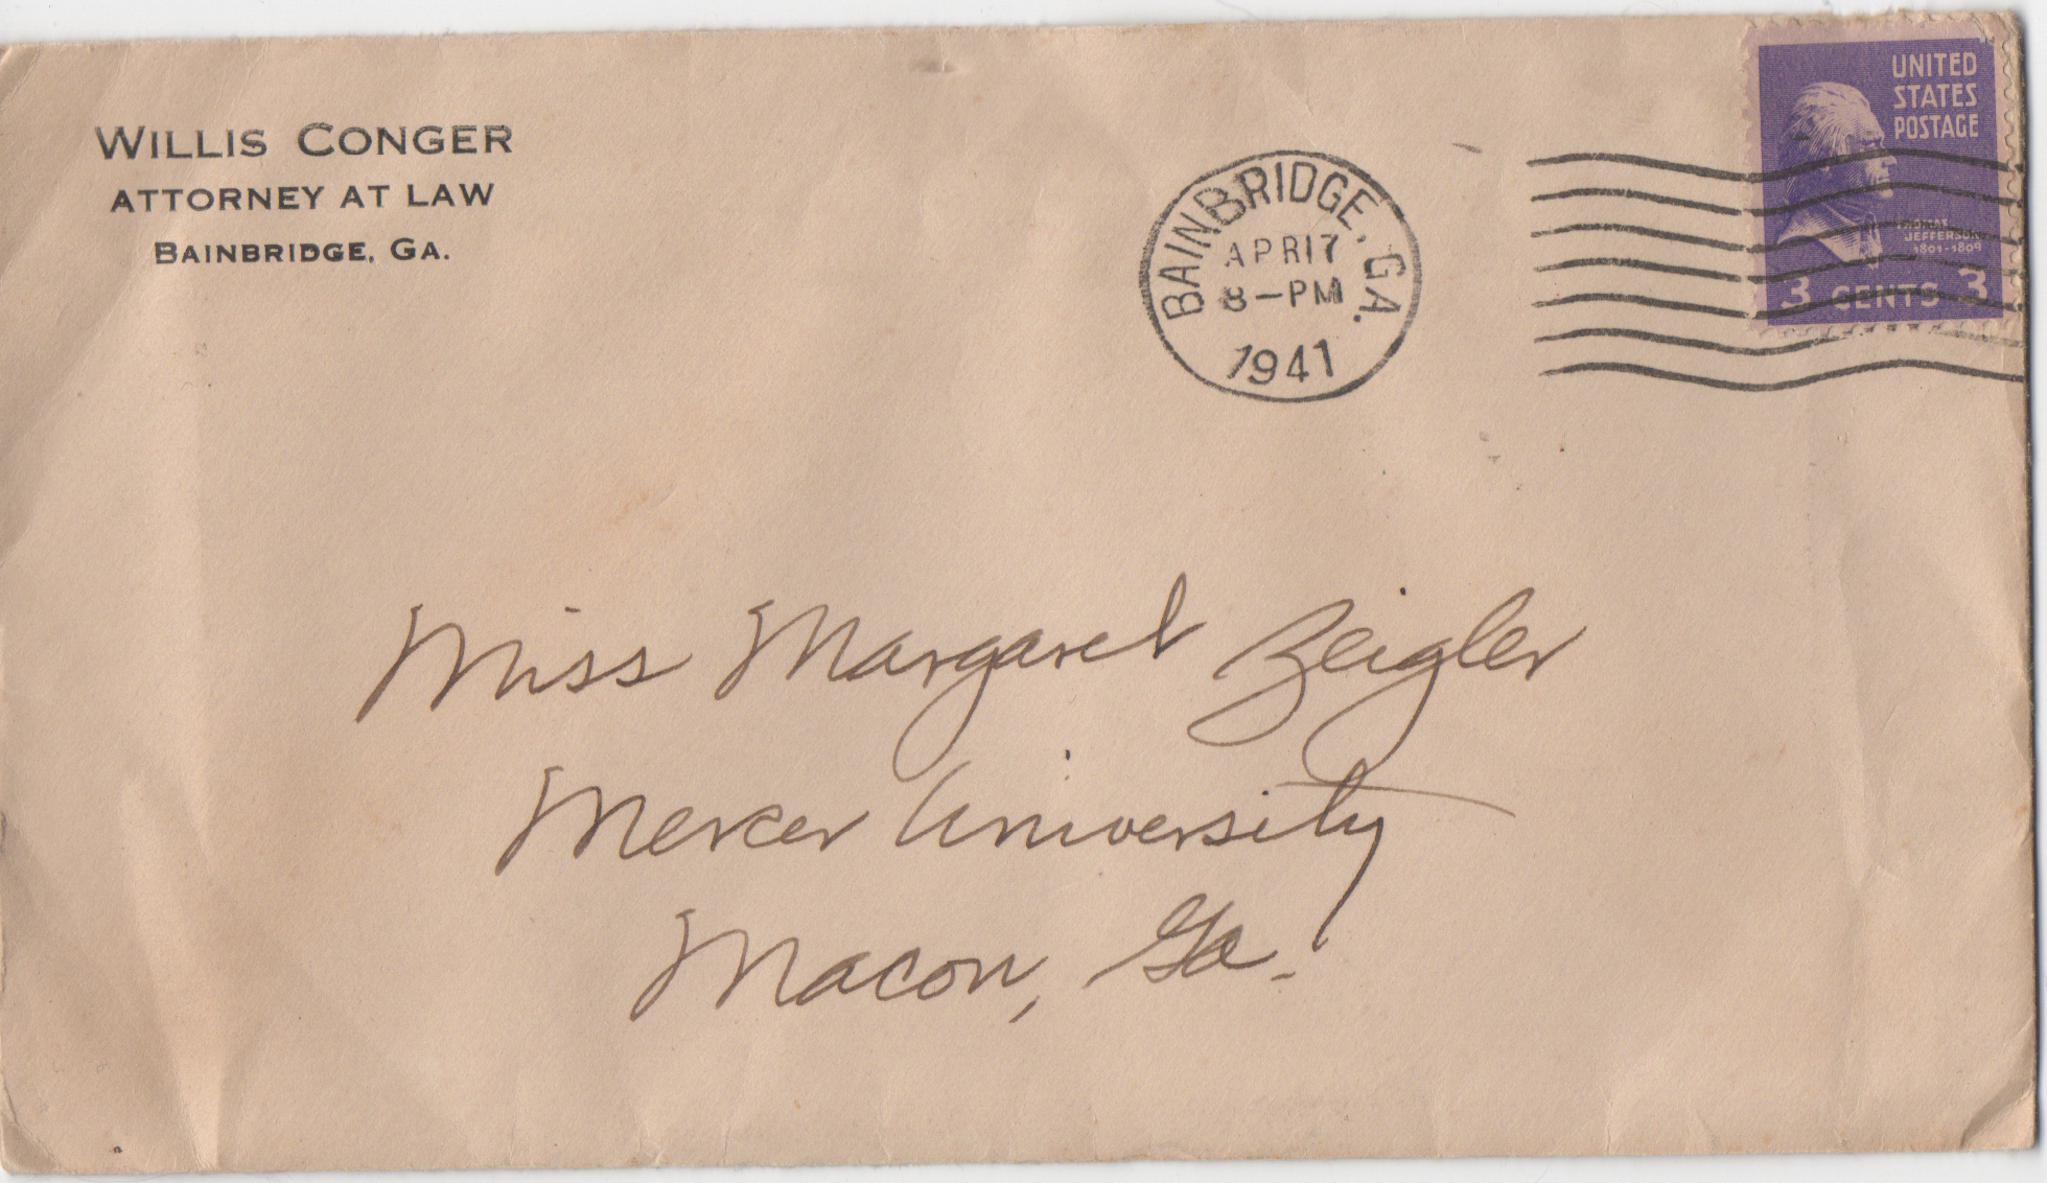 WILLIS CONGER
ATTORNEY AT LAW
BAINBRIDGE, GA.
BAINBRIDGE, GA.
APR 17
8-PM
1941
UNITED
STATES
POSTAGE
THOMAS
JEFFERSON
1801-1809
3 CENTS 3
Miss Margaret Zeigler
Mercer University
Macon, Ga.